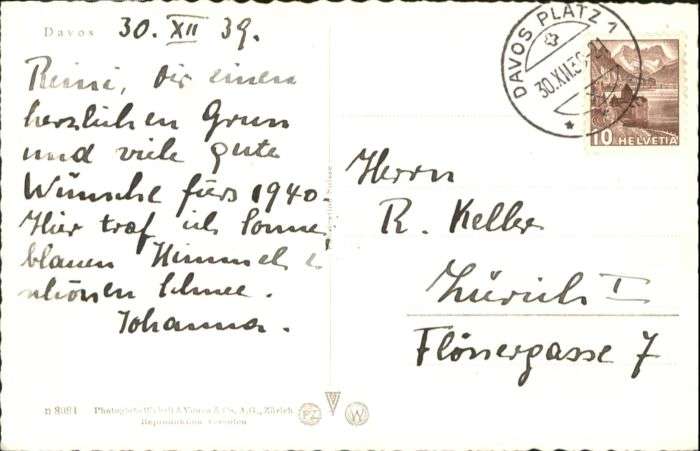 Davos 30. XII 39.
Reini, Dir einen
herzlichen Gruss
und viele gute
Wünsche fürs 1940.
Hier traf ich Sonne,
blauen Himmel &
schönen Schnee.
Johanna.
DAVOS PLATZ 1
30.XII.39
10 HELVETIA
Herrn
R. Keller
Zürich I
Flössergasse 7
n 8081 Photoglob-Wehrli & Vouga & Co, A.G., Zürich
Reproduktion verboten
PZ
W